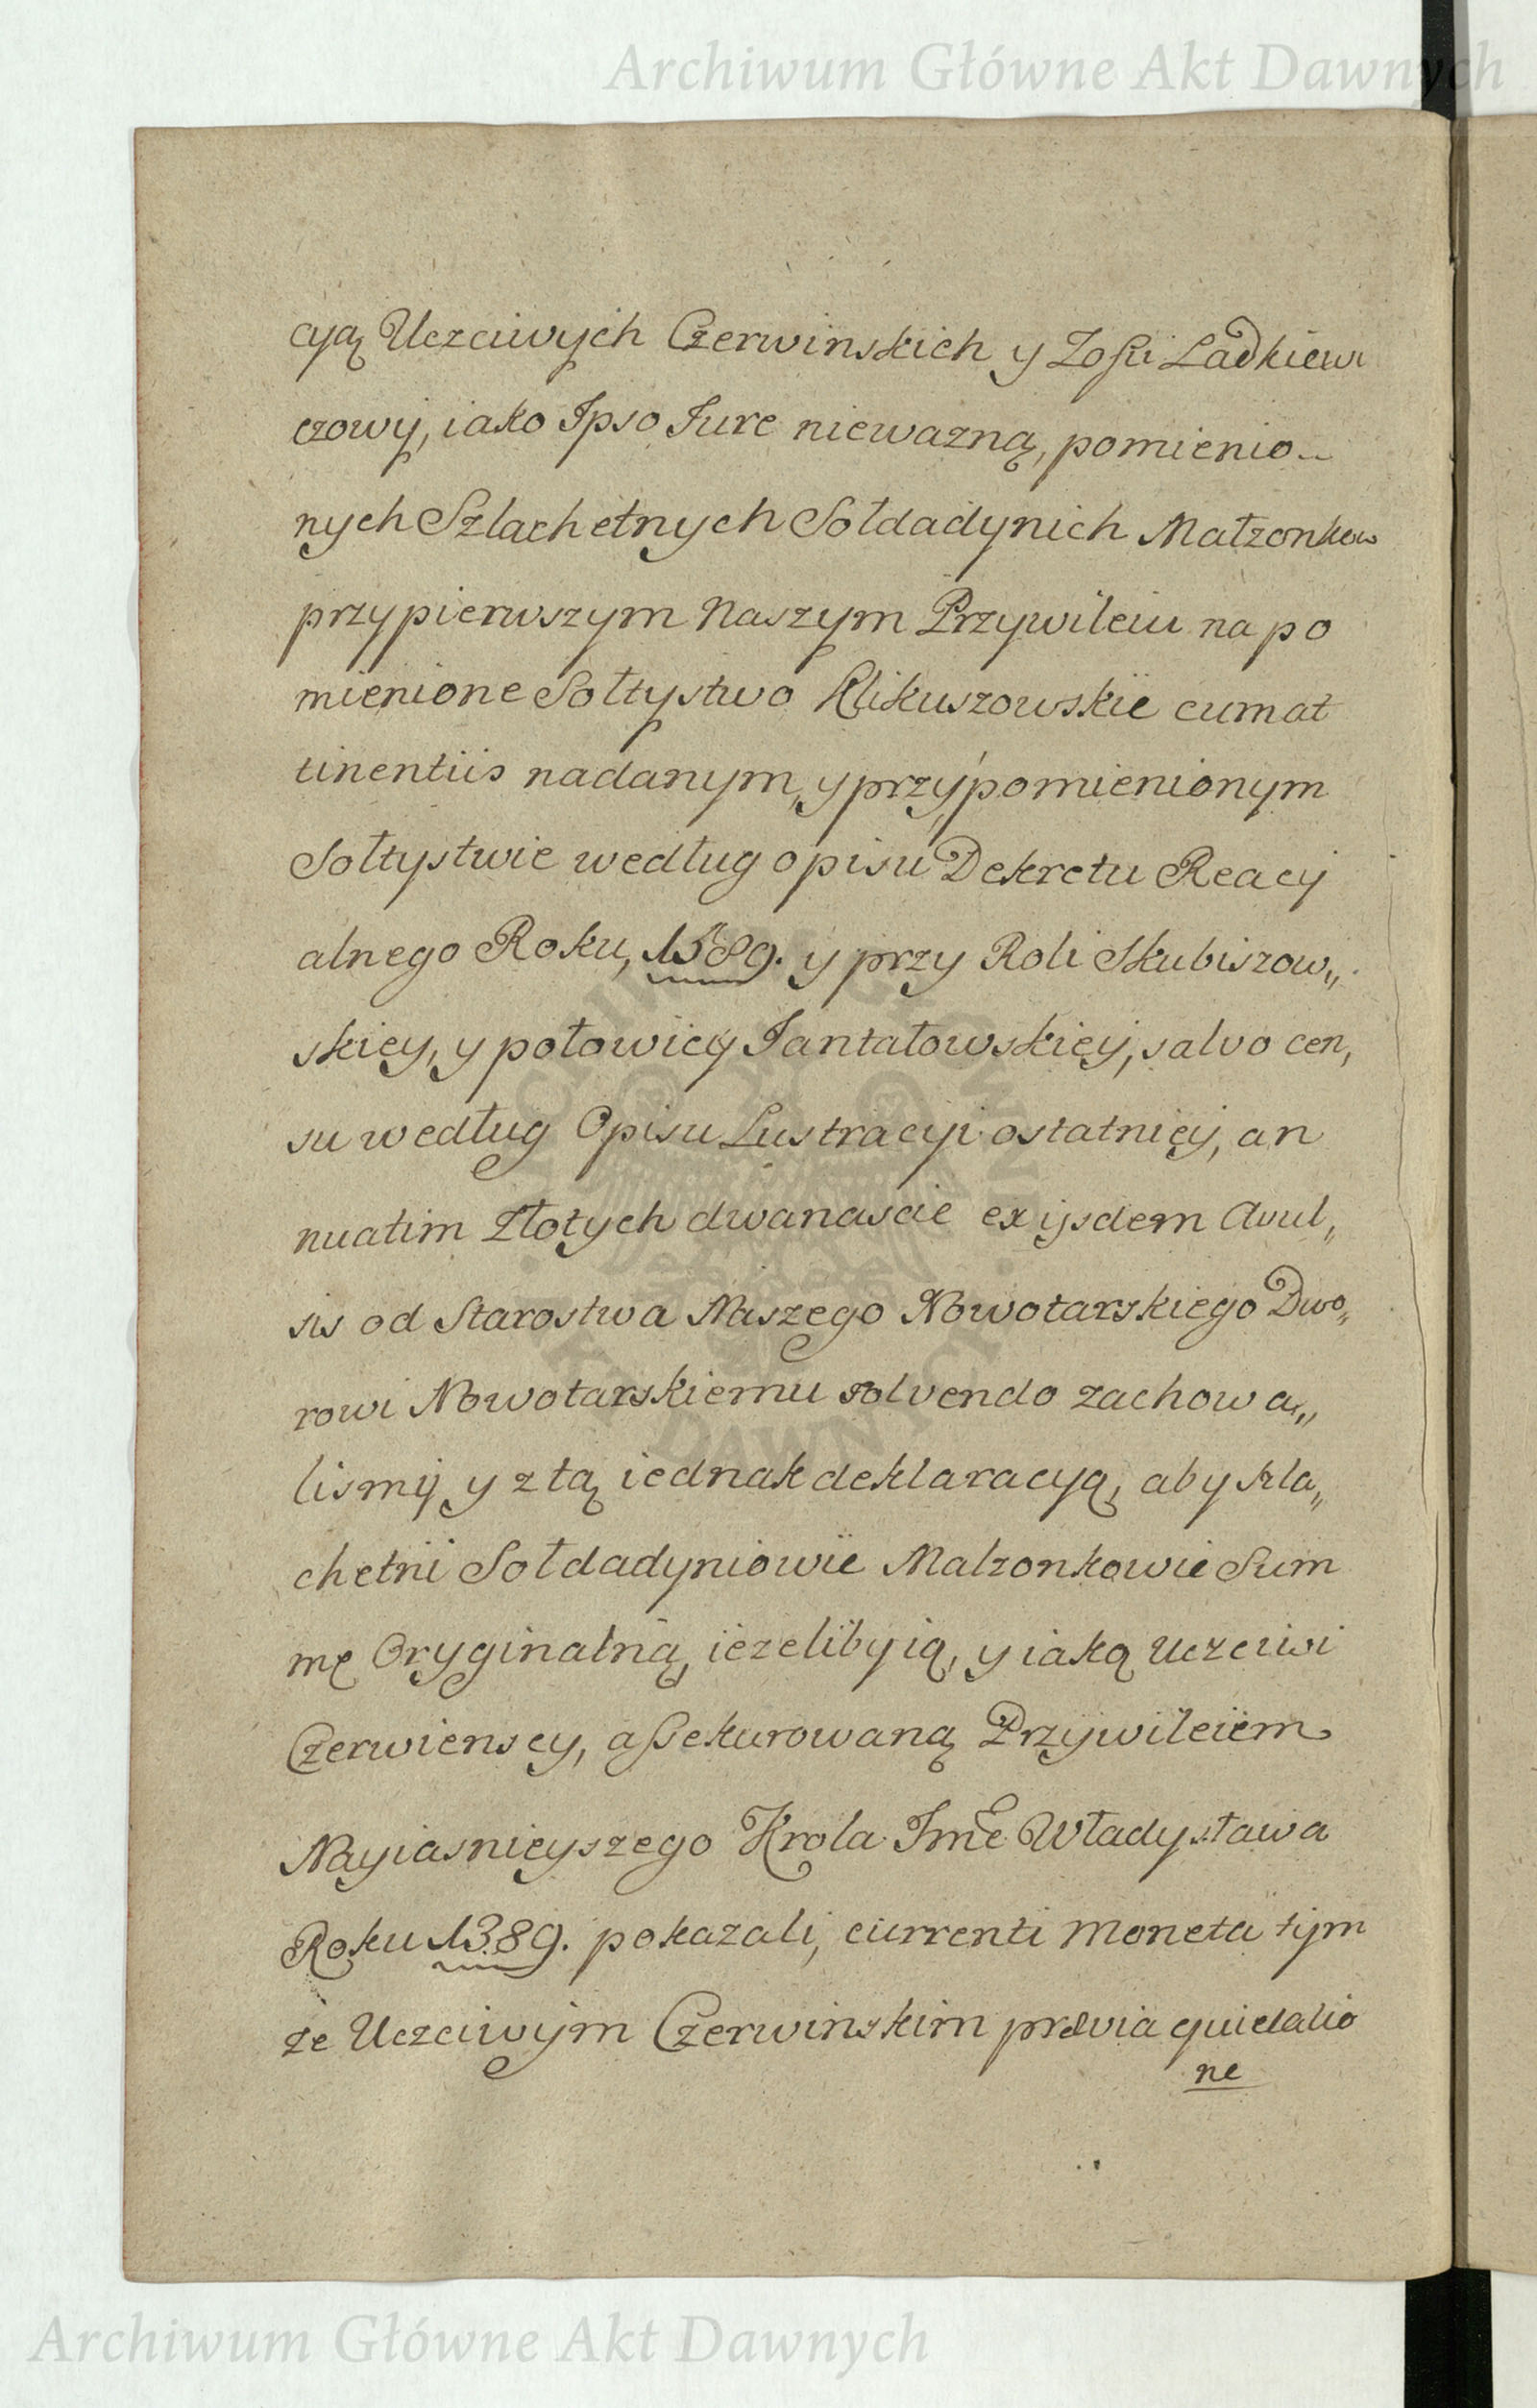 Archiwum Główne Akt Dawnych
cyą Uczciwych Czerwinskich y Zofii Ladkiewi
czowy, iako Ipso Jure niewazną, pomienio-
nych Szlachetnych Sołdadynich Małzonkow
przy pierwszym Naszym Przywileiu na po
mienione Sołtystwo Klikuszowskie cum at
tinentiis nadanym, y przy pomienionym
Sołtystwie według opisu Dekretu Reacy
alnego Roku, 1589. y przy Roli Skubiszow„
skiey, y połowicy Jantałowskiey, salvo cen,
su według Opisu Lustracyi ostatniey, an
nuatim Złotych dwanascie ex ijsdem Avul„
sis od Starostwa Naszego Nowotarskiego Dwo„
rowi Nowotarskiemu solvendo zachowa„
lismy y z tą iednak deklaracyą, aby szla„
chetni Sołdadyniowie Małzonkowie Sum
mę Oryginalną, iezeliby ią, y iaką Uczciwi
Czerwiensсy, assekurowaną Przywileiem
Nayiasnieyszego Krola Jmċ Władysława
Roku 1389. pokazali, currenti Moneta tym
że Uczciwym Czerwinskim prævia quietatio
ne
Archiwum Główne Akt Dawnych